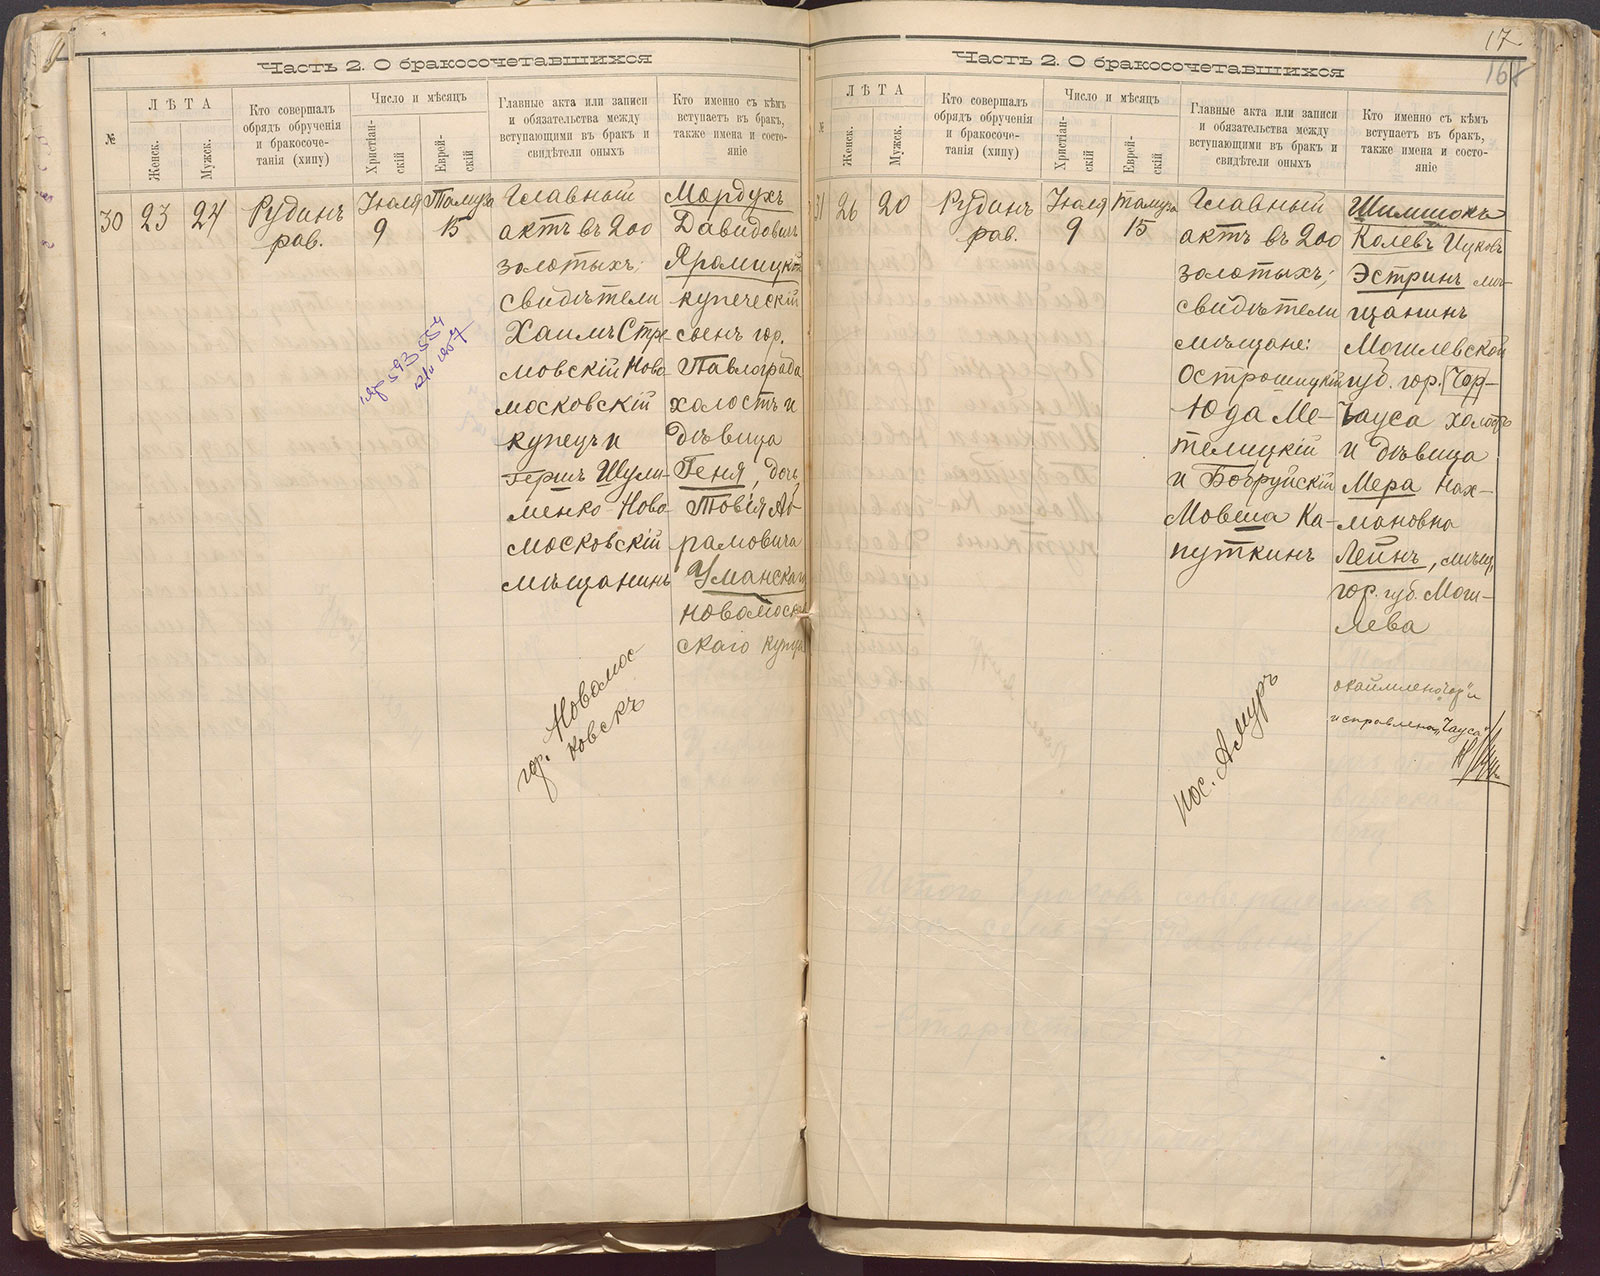 Часть 2. О бракосочетавшихся
№
ЛѢТА
Женск.
Мужск.
Кто совершалъ
обрядъ обрученія
и бракосоче-
танія (хипу)
Число и мѣсяцъ
Христіан-
скій
Еврей-
скій
Главные акта или записи
и обязательства между
вступающими въ бракъ и
свидѣтели оныхъ
Кто именно съ кѣмъ
вступаетъ въ бракъ,
также имена и состо-
яніе
30
23
24
Рубинъ
рав.
Іюля
9
Тамуза
15
Главный
актъ въ 200
золотыхъ;
свидѣтели
Хаимъ Стре-
мовскій Ново
московскій
купецъ и
Гершъ Шули-
менко Ново
московскій
мѣщанинъ
гор. Новомос-
ковскъ
Мордухъ
Давидовичъ
купеческій
сынъ гор.
Павлограда
холостъ и
дѣвица
Геня, дочь
Товія Аб
рамовича
Уманскаго
новомоск
скаго купца
17
168
Часть 2. О бракосочетавшихся
№
ЛѢТА
Женск.
Мужск.
Кто совершалъ
обрядъ обрученія
и бракосоче-
танія (хипу)
Число и мѣсяцъ
Христіан-
скій
Еврей-
скій
Главные акта или записи
и обязательства между
вступающими въ бракъ и
свидѣтели оныхъ
Кто именно съ кѣмъ
вступаетъ въ бракъ,
также имена и состо-
яніе
31
26
20
Рубинъ
рав.
Іюля
9
Тамуза
15
Главный
актъ въ 200
золотыхъ;
свидѣтели
мѣщане:
Острошицкій
Юда Ме-
телицкій
и Бобруйскій
Мовша Ка-
путкинъ
пос. Амуръ
Шимшонъ
Калевъ Ицковъ
Эстринъ мѣ-
щанинъ
Могилевской
губ. гор. Чер-
Чауса холостъ
и дѣвица
Мера Нах-
мановна
Лейнъ, мѣщ.
гор. губ. Моги-
лева
окаймлено „Чер“ и
исправлено „Чауса“